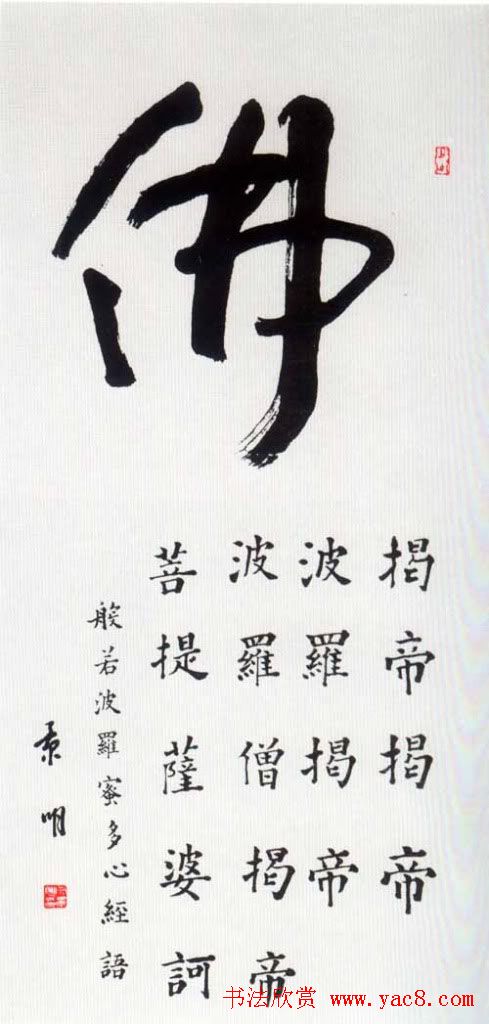 佛
揭帝揭帝
波羅揭帝
波羅僧揭帝
菩提薩婆訶
般若波羅蜜多心經語
书法欣赏 www.yac8.com